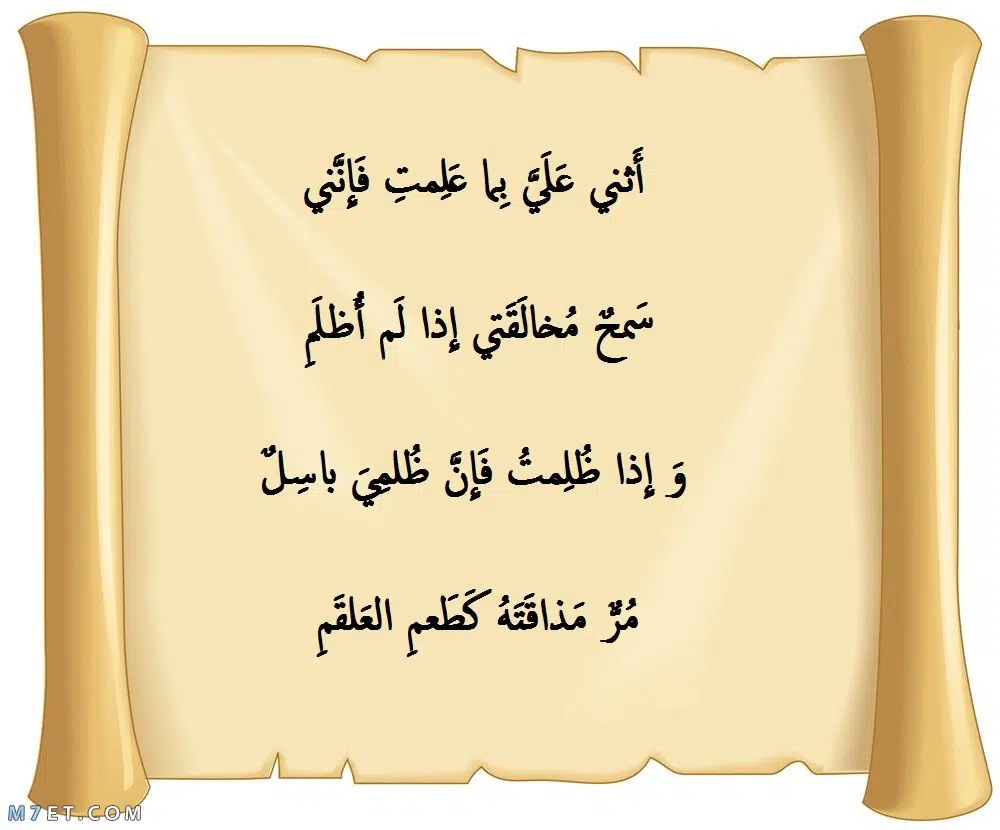 أَثني عَلَيَّ بِما عَلِمتِ فَإِنَّني
سَمحٌ مُخالَقَتي إِذا لَم أُظلَمِ
وَ إِذا ظُلِمتُ فَإِنَّ ظُلمِيَ باسِلٌ
مُرٌّ مَذاقَتَهُ كَطَعمِ العَلقَمِ
M7ET.COM